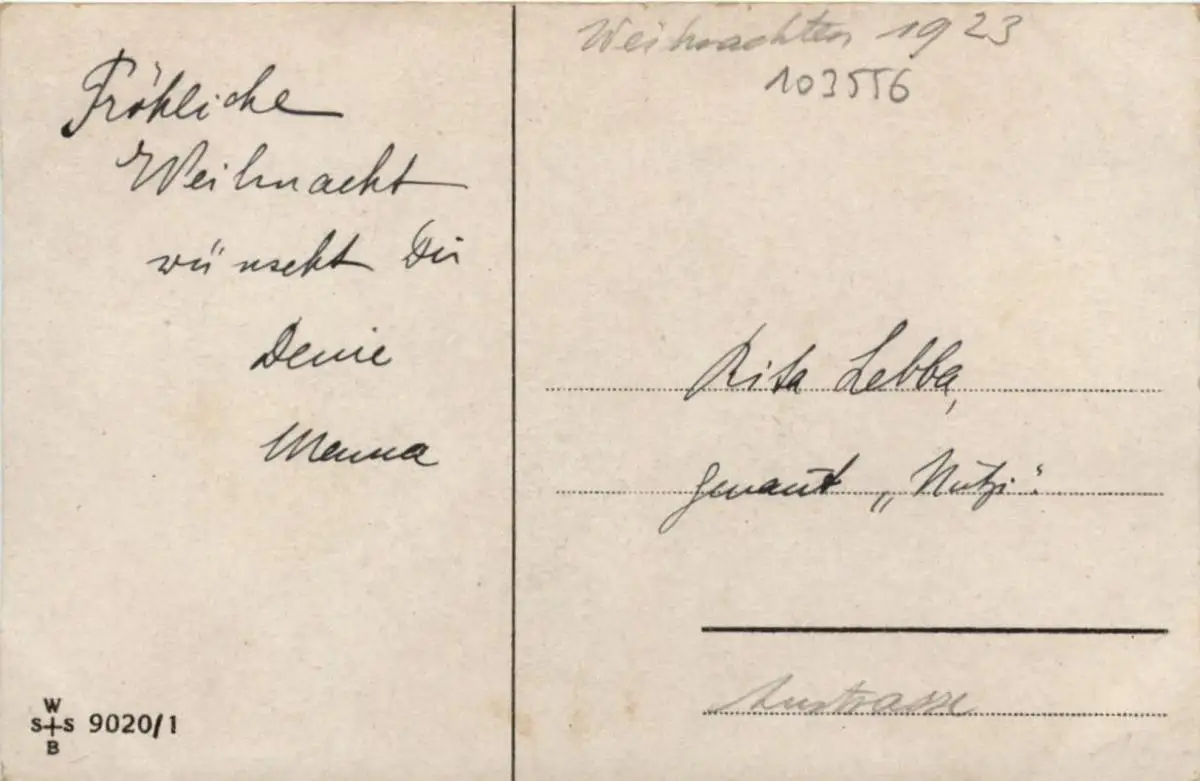 Fröhliche
Weihnacht
wünscht Dir
Deine
Mama
W
S+S 9020/1
B
Weihnachten 1923
103556
Rita Lebba,
genannt „Mutzi“